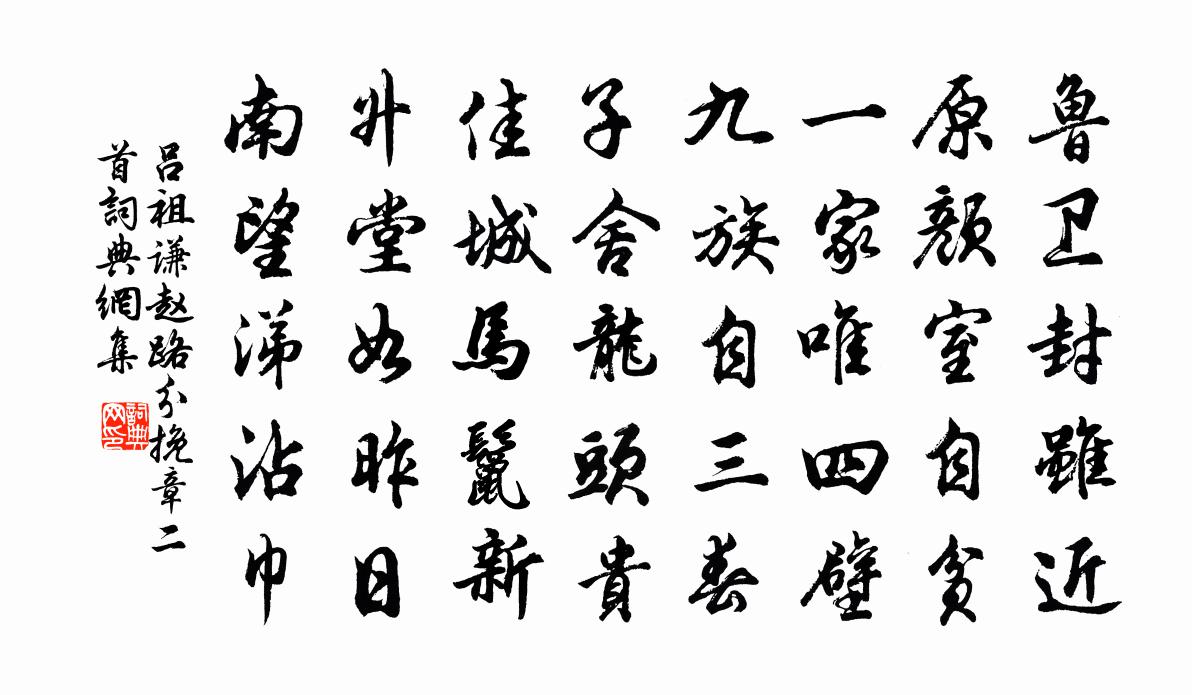 鲁卫封雖近
原顏室自貧
一家唯四壁
九族自三春
子舍龍頭貴
佳城馬鬣新
升堂如昨日
南望涕沾巾
呂祖谦赵路分挽章二
首詞典網集
詞典
网印